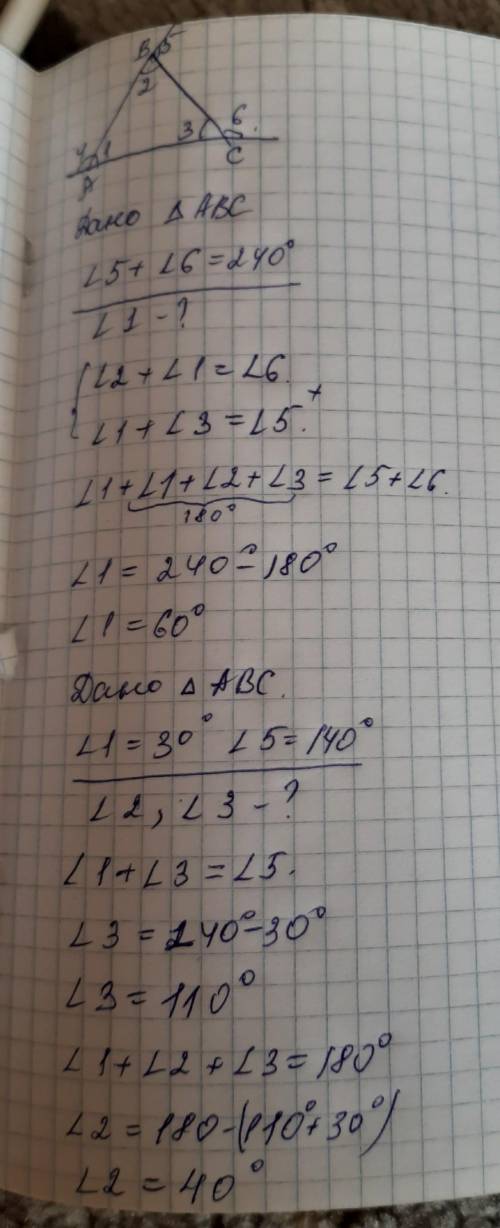 B 5
2
3 6
4 1
A C
Дано △ ABC
∠5 + ∠6 = 240°
∠1 - ?
{ ∠2 + ∠1 = ∠6.
∠1 + ∠3 = ∠5. +
∠1 + ∠1 + ∠2 + ∠3 = ∠5 + ∠6.
180°
∠1 = 240° - 180°
∠1 = 60°
Дано △ ABC.
∠1 = 30° ∠5 = 140°
∠2, ∠3 - ?
∠1 + ∠3 = ∠5.
∠3 = 140° - 30°
∠3 = 110°
∠1 + ∠2 + ∠3 = 180°
∠2 = 180 - (110° + 30°)
∠2 = 40°